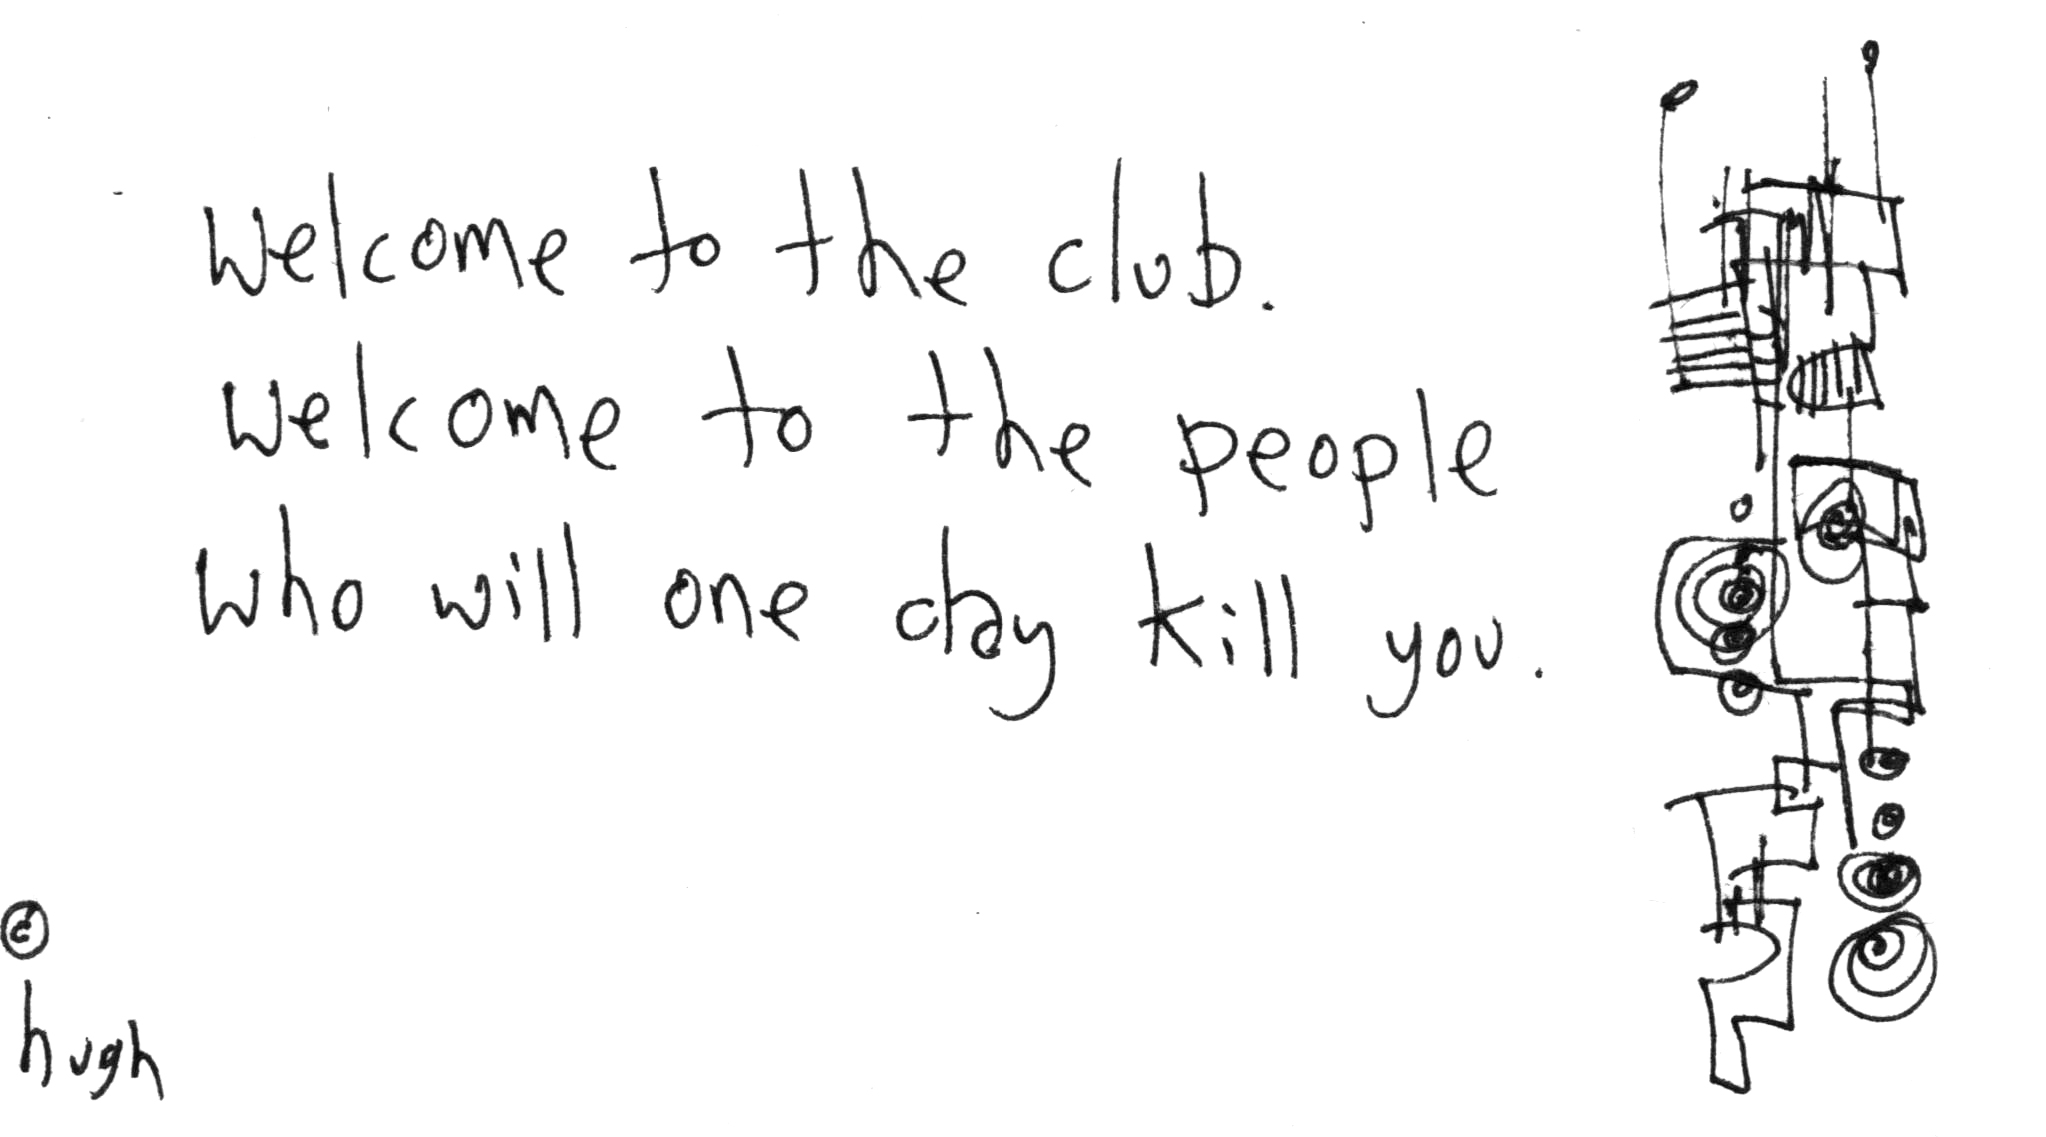 Welcome to the club.
Welcome to the people
who will one day kill you.
©
hugh